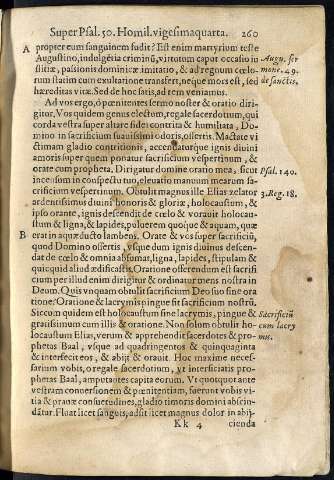 Super Psal. 50. Homil. vigesimaquarta. 260
A propter eum sanguinem fudit? Est enim martyrium teste
Augustino, indulgētia criminū, virtutum caput occasio iu
stitiæ, passionis dominicæ imitatio, & ad regnum cœlo-
rum statim cum exultatione transfert, neque mors est, sed
hæreditas vitæ. Sed de hoc satis, ad rem veniamus.
Augu. ser
mone. 49.
de sanctis.
Ad vos ergo, ô pœnitentes sermo noster & oratio diri-
gitur. Vos quidem genus electum, regale sacerdotium, qui
corda vestra super altare fidei contrita & humiliata, Do-
mino in sacrificium suauissimi odoris, offertis. Mactate vi
ctimam gladio contritionis, accendaturque ignis diuini
amoris super quem ponatur sacrificium vespertinum, &
orate cum propheta. Dirigatur domine oratio mea, sicut
incensum in conspectu tuo, eleuatio manuum mearum sa-
crificium vespertinum. Obtulit magnus ille Elias zelator
ardentissimus diuini honoris & gloriæ, holocaustum, &
ipso orante, ignis descendit de cœlo & vorauit holocau-
stum & ligna, & lapides, puluerem quoque & aquam, quæ
Psal. 140.
3. Reg. 18.
B erat in aquæductu lambens. Orate & vos super sacrificiū,
quod Domino offertis, vsque dum ignis diuinus descen-
dat de cœlo & omnia absumat, ligna, lapides, stipulam &
quicquid aliud ædificastis. Oratione offerendum est sacrifi
cium per illud enim dirigitur & ordinatur mens nostra in
Deum. Quis vnquam obtulit sacrificium Deo suo sine ora
tione? Oratione & lacrymis pingue fit sacrificium nostrū.
Siccum quidem est holocaustum sine lacrymis, pingue &
gratissimum cum illis & oratione. Non solum obtulit ho
locaustum Elias, verum & apprehendit sacerdotes & pro-
phetas Baal, vsque ad quadringentos & quinquaginta
& interfecit eos, & abijt & orauit. Hoc maxime neces-
sarium vobis, o regale sacerdotium, vt interfectis pro-
phetis Baal, amputantes capita eorum. Vt quotquot ante
vestram conuersionem & pœnitentiam, fuerunt vobis vi-
tia & prauæ consuetudines, gladio timoris domini abscin-
dātur. Fluat licet sanguis, adsit licet magnus dolor in abij-
Sacrificiū
cum lacry
mis.
Kk 4 cienda